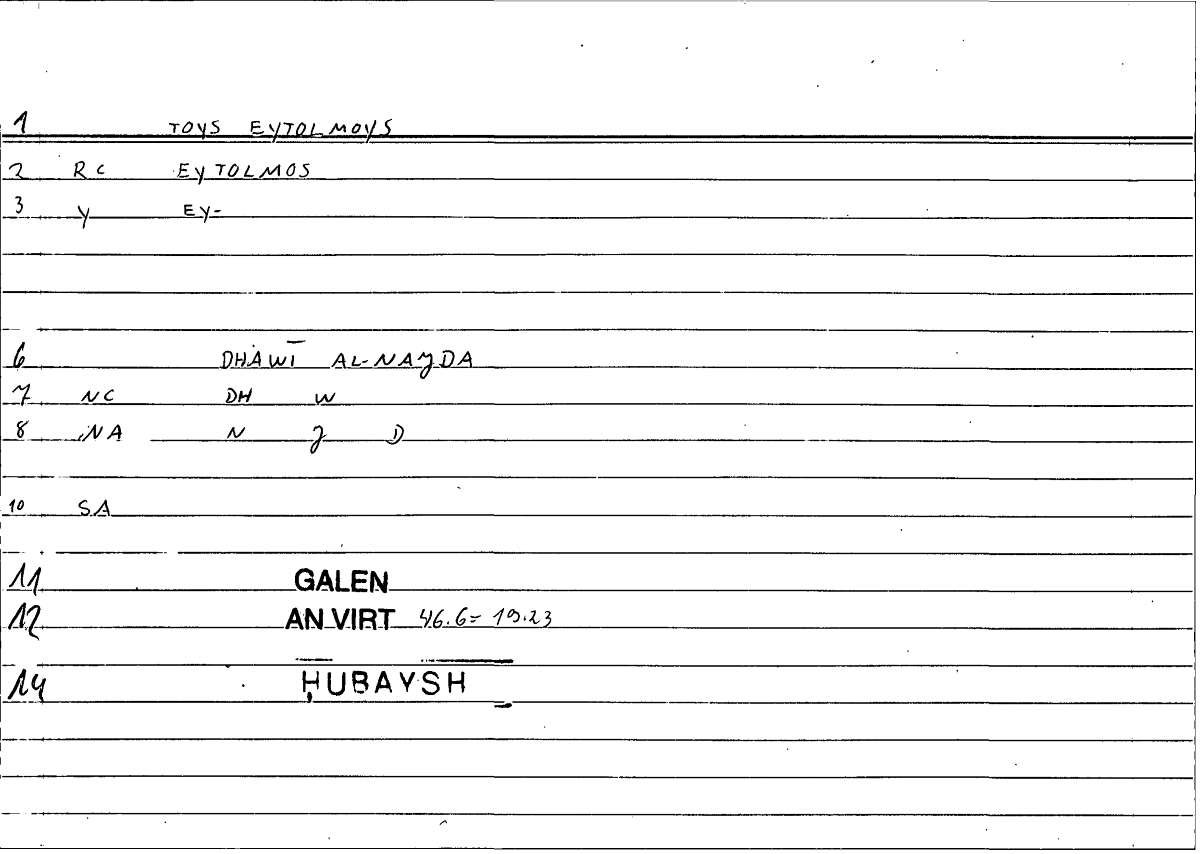 1 TOYS EYTOLMOYS
2 RC EYTOLMOS
3 Y EY-
6 DHAWĪ AL-NAJDA
7 NC DH W
8 NA N J D
10 SA
11 GALEN
12 AN VIRT 46.6 = 19.23
14 ḤUBAYSH